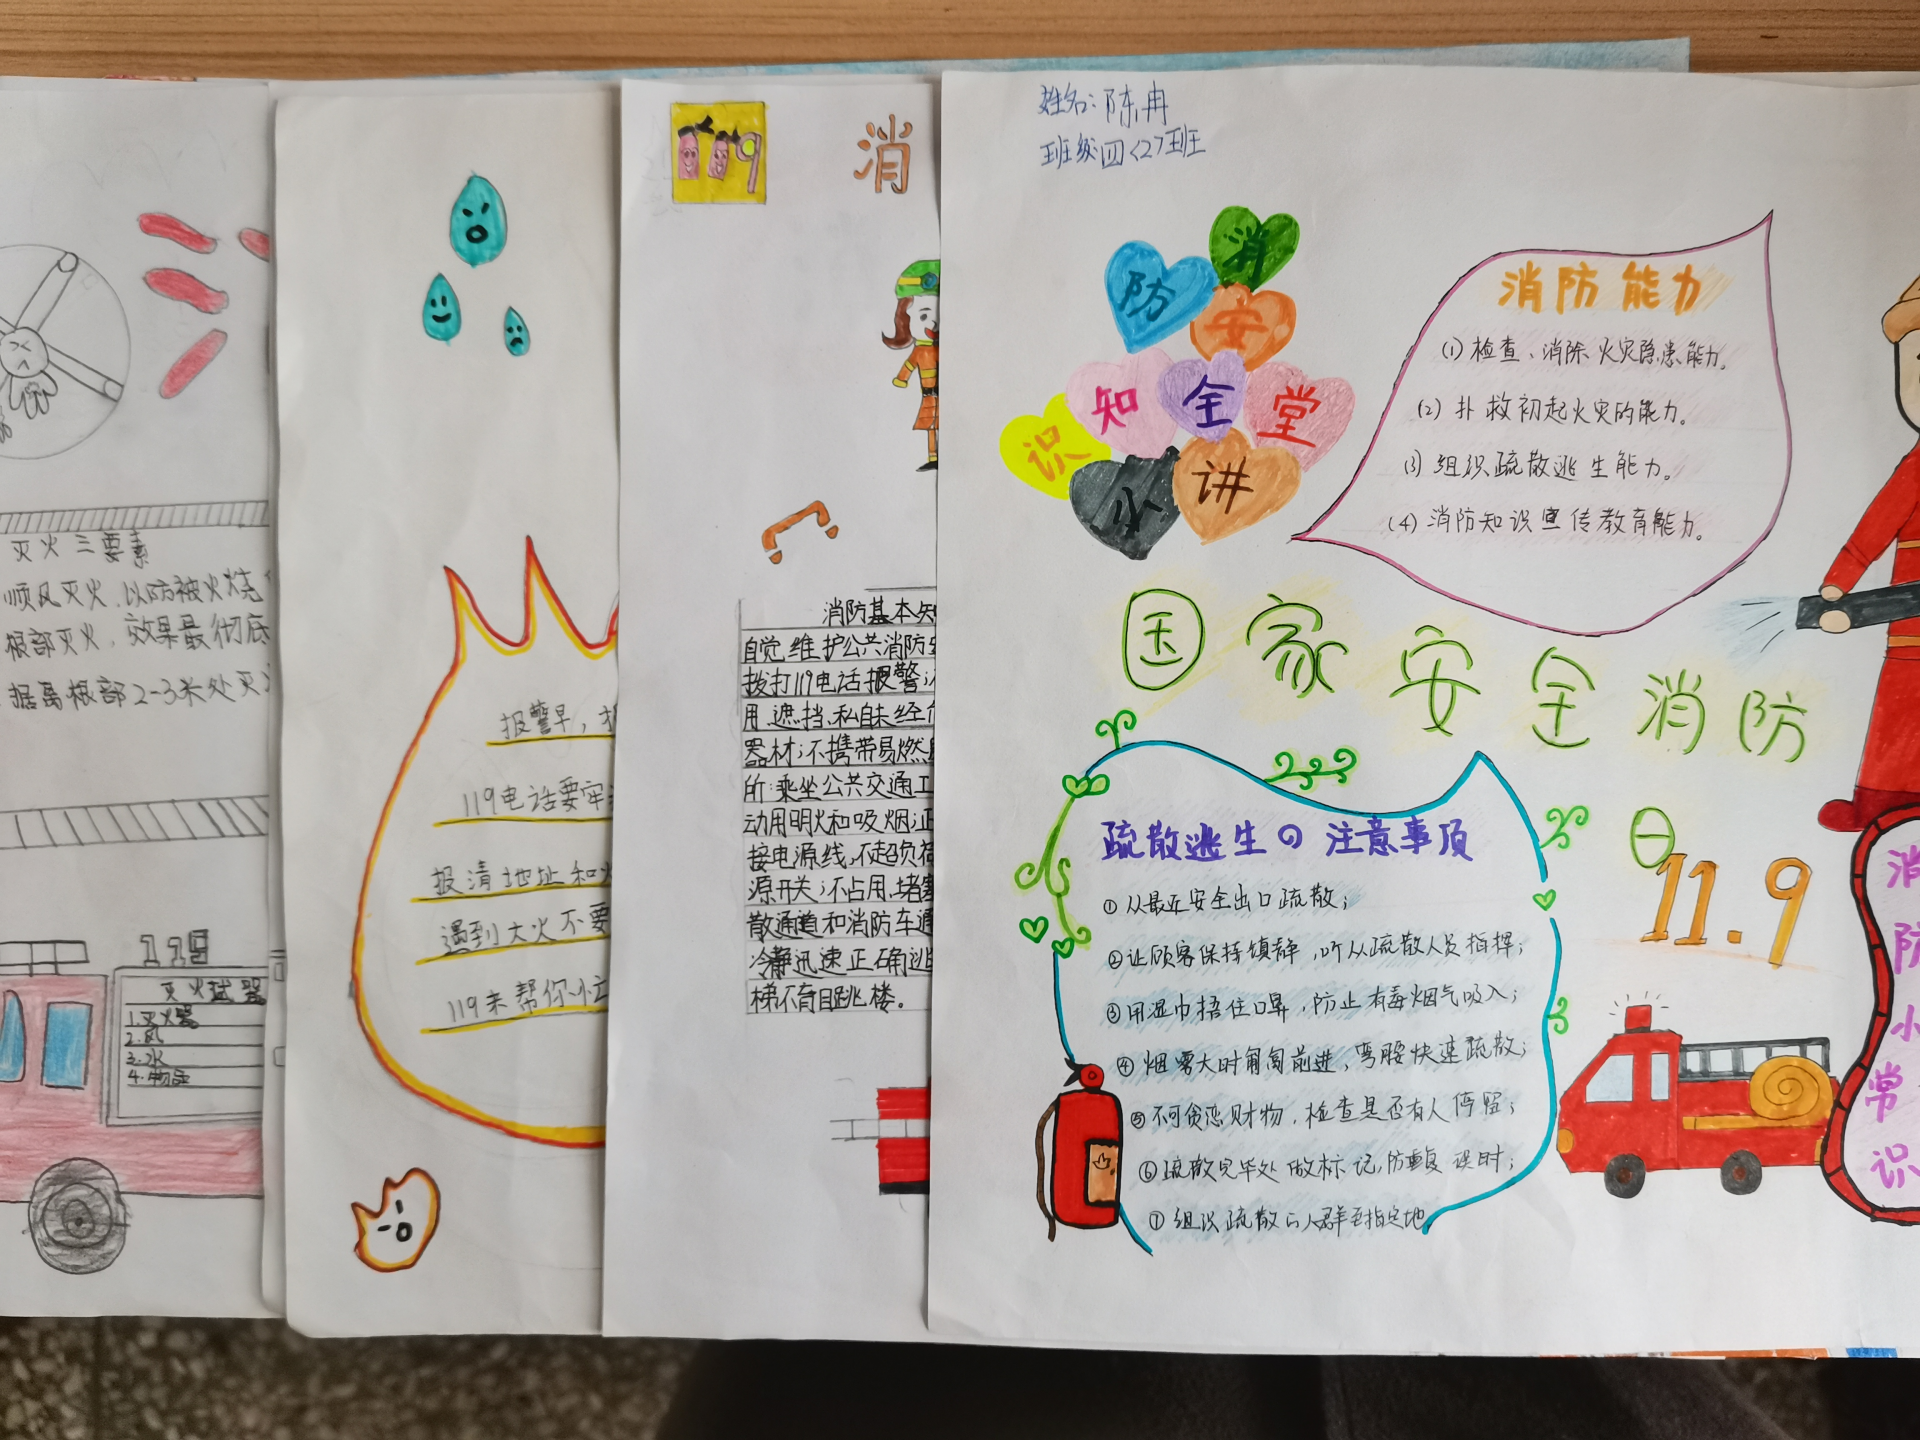 灭火三要素
顺风灭火,以防被火烧
根部灭火,效果最彻底
据离根部2-3米处灭
119
灭火武器
1.灭火器
2.风
3.水
4.物品
报警早,
119电话要牢
报清地址和火
遇到大火不要
119来帮你忙
119
消
消防基本知
自觉维护公共消防安
拨打119电话报警;不
用、遮挡、私自未经
器材;不携带易燃
所:乘坐公共交通工
动用明火和吸烟;正
接电源线,不超负荷
源开关;不占用、堵塞
散通道和消防车通
冷静迅速正确逃
梯不盲目跳楼。
姓名:陈冉
班级四<2>班
消
防
安
知
全
堂
识
小
讲
消防能力
(1)检查、消除火灾隐患能力。
(2)扑救初起火灾的能力。
(3)组织疏散逃生能力。
(4)消防知识宣传教育能力。
国家安全消防日
11.9
疏散逃生の注意事项
①从最近安全出口疏散;
②让顾客保持镇静,听从疏散人员指挥;
③用湿巾捂住口鼻,防止有毒烟气吸入;
④烟雾大时匍匐前进,弯腰快速疏散;
⑤不可贪恋财物,检查是否有人停留;
⑥疏散完毕处做标记,防重复误时;
⑦组织疏散的人群至指定地。
消防小常识